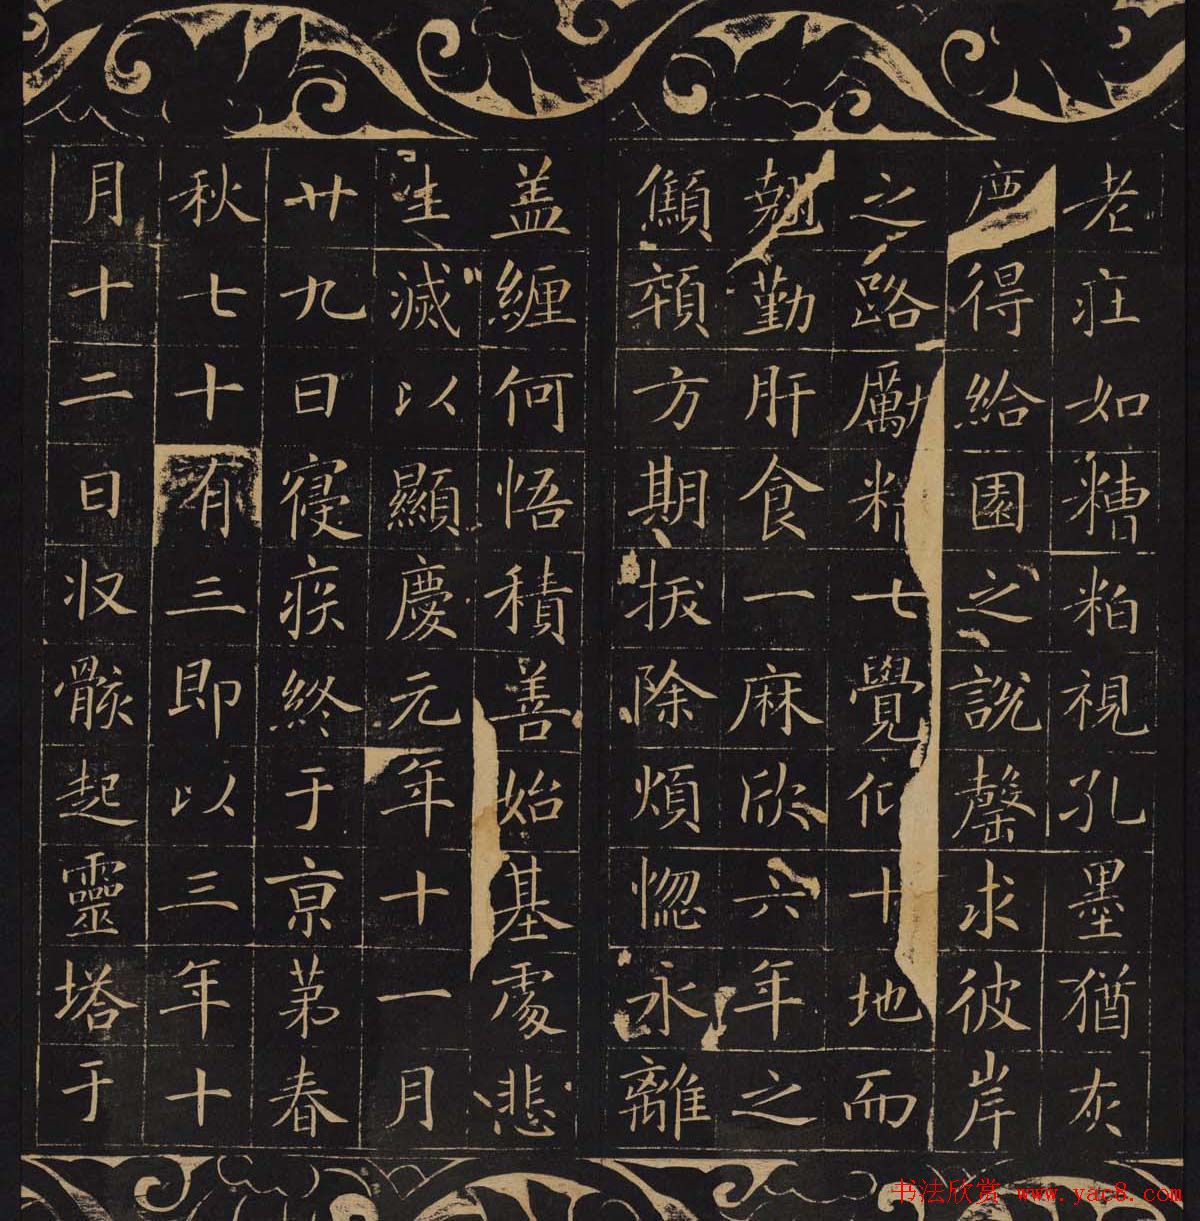 老疘如糟粕視孔墨猶灰
得給園之說罄求彼岸
之路勵精七覺仰十地而
翹勤肝食一麻欣六年之
顦顇方期拔除煩惚永離
盖纏何悟積善始基處悲
生滅以顯慶元年十一月
廿九日寑疾終于京苐春
秋七十有三即以三年十
月十二日收骸起靈塔于
书法欣赏 www.yac8.com